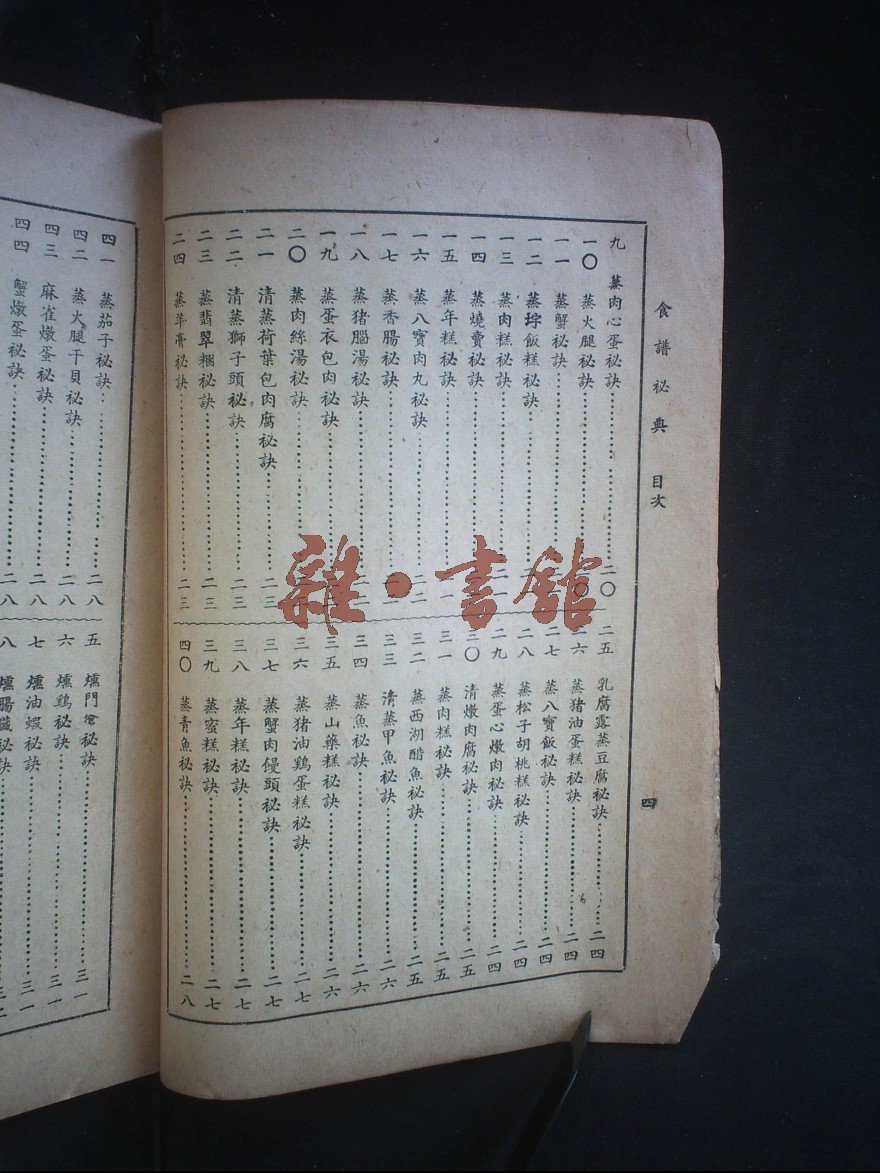 食譜秘典 目次
四
九 蒸肉心蛋秘訣 二〇
一〇 蒸火腿秘訣
一一 蒸蟹秘訣
一二 蒸垶飯糕秘訣
一三 蒸肉糕秘訣
一四 蒸燒賣秘訣
一五 蒸年糕秘訣
一六 蒸八寶肉丸秘訣
一七 蒸香腸秘訣
一八 蒸猪腦湯秘訣
一九 蒸蛋衣包肉秘訣
二〇 蒸肉絲湯秘訣
二一 清蒸荷葉包肉腐秘訣 二三
二二 清蒸獅子頭秘訣 二三
二三 蒸翡翠糰秘訣 二三
二四 蒸羊膏秘訣 二三
二五 乳腐露蒸豆腐秘訣 二四
二六 蒸猪油蛋糕秘訣 二四
二七 蒸八寶飯秘訣 二四
二八 蒸松子胡桃糕秘訣 二四
二九 蒸蛋心燉肉秘訣 二四
三〇 清燉肉腐秘訣 二五
三一 蒸肉糕秘訣 二五
三二 蒸西湖醋魚秘訣 二五
三三 清蒸甲魚秘訣 二六
三四 蒸魚秘訣 二六
三五 蒸山藥糕秘訣 二六
三六 蒸猪油鷄蛋糕秘訣 二七
三七 蒸蟹肉饅頭秘訣 二七
三八 蒸年糕秘訣 二七
三九 蒸蜜糕秘訣 二七
四〇 蒸青魚秘訣 二八
四一 蒸茄子秘訣 二八
四二 蒸火腿干貝秘訣 二八
四三 麻雀燉蛋秘訣 二八
四四 蟹燉蛋秘訣 二八
五 燻門秘訣 三一
六 燻鷄秘訣 三一
七 燻油蝦秘訣 三一
八 燻腸臟秘訣 三二
雜·書館